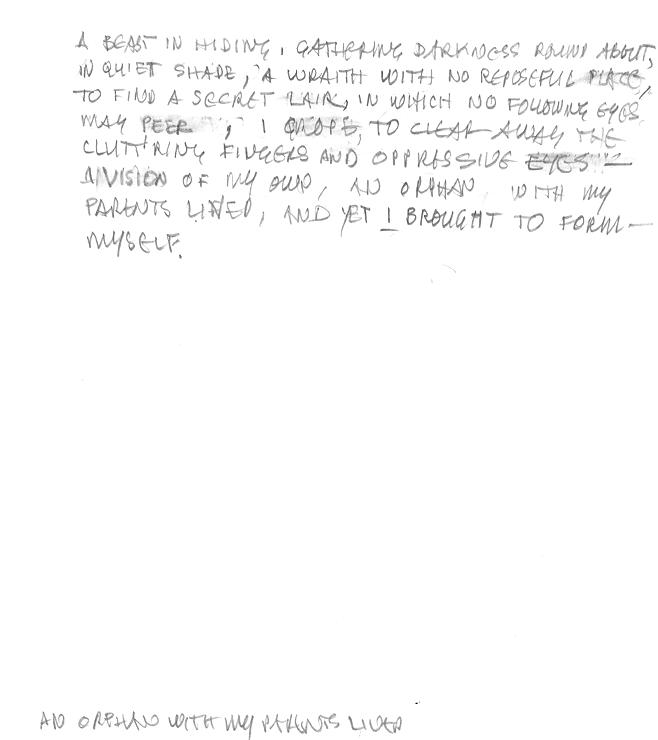 A BEAST IN HIDING, GATHERING DARKNESS ROUND ABOUT,
IN QUIET SHADE, A WRAITH WITH NO REPOSEFUL PLACE,
TO FIND A SECRET LAIR, IN WHICH NO FOLLOWING EYES
MAY PEER, I GROPE, TO CLEAR AWAY THE
CLUTT'RING FINGERS AND OPPRESSIVE EYES —
DIVISION OF MY OWN, AN ORPHAN WITH MY
PARENTS LIVED, AND YET I BROUGHT TO FORM —
MYSELF.
AN ORPHAN WITH MY PARENTS LIVED